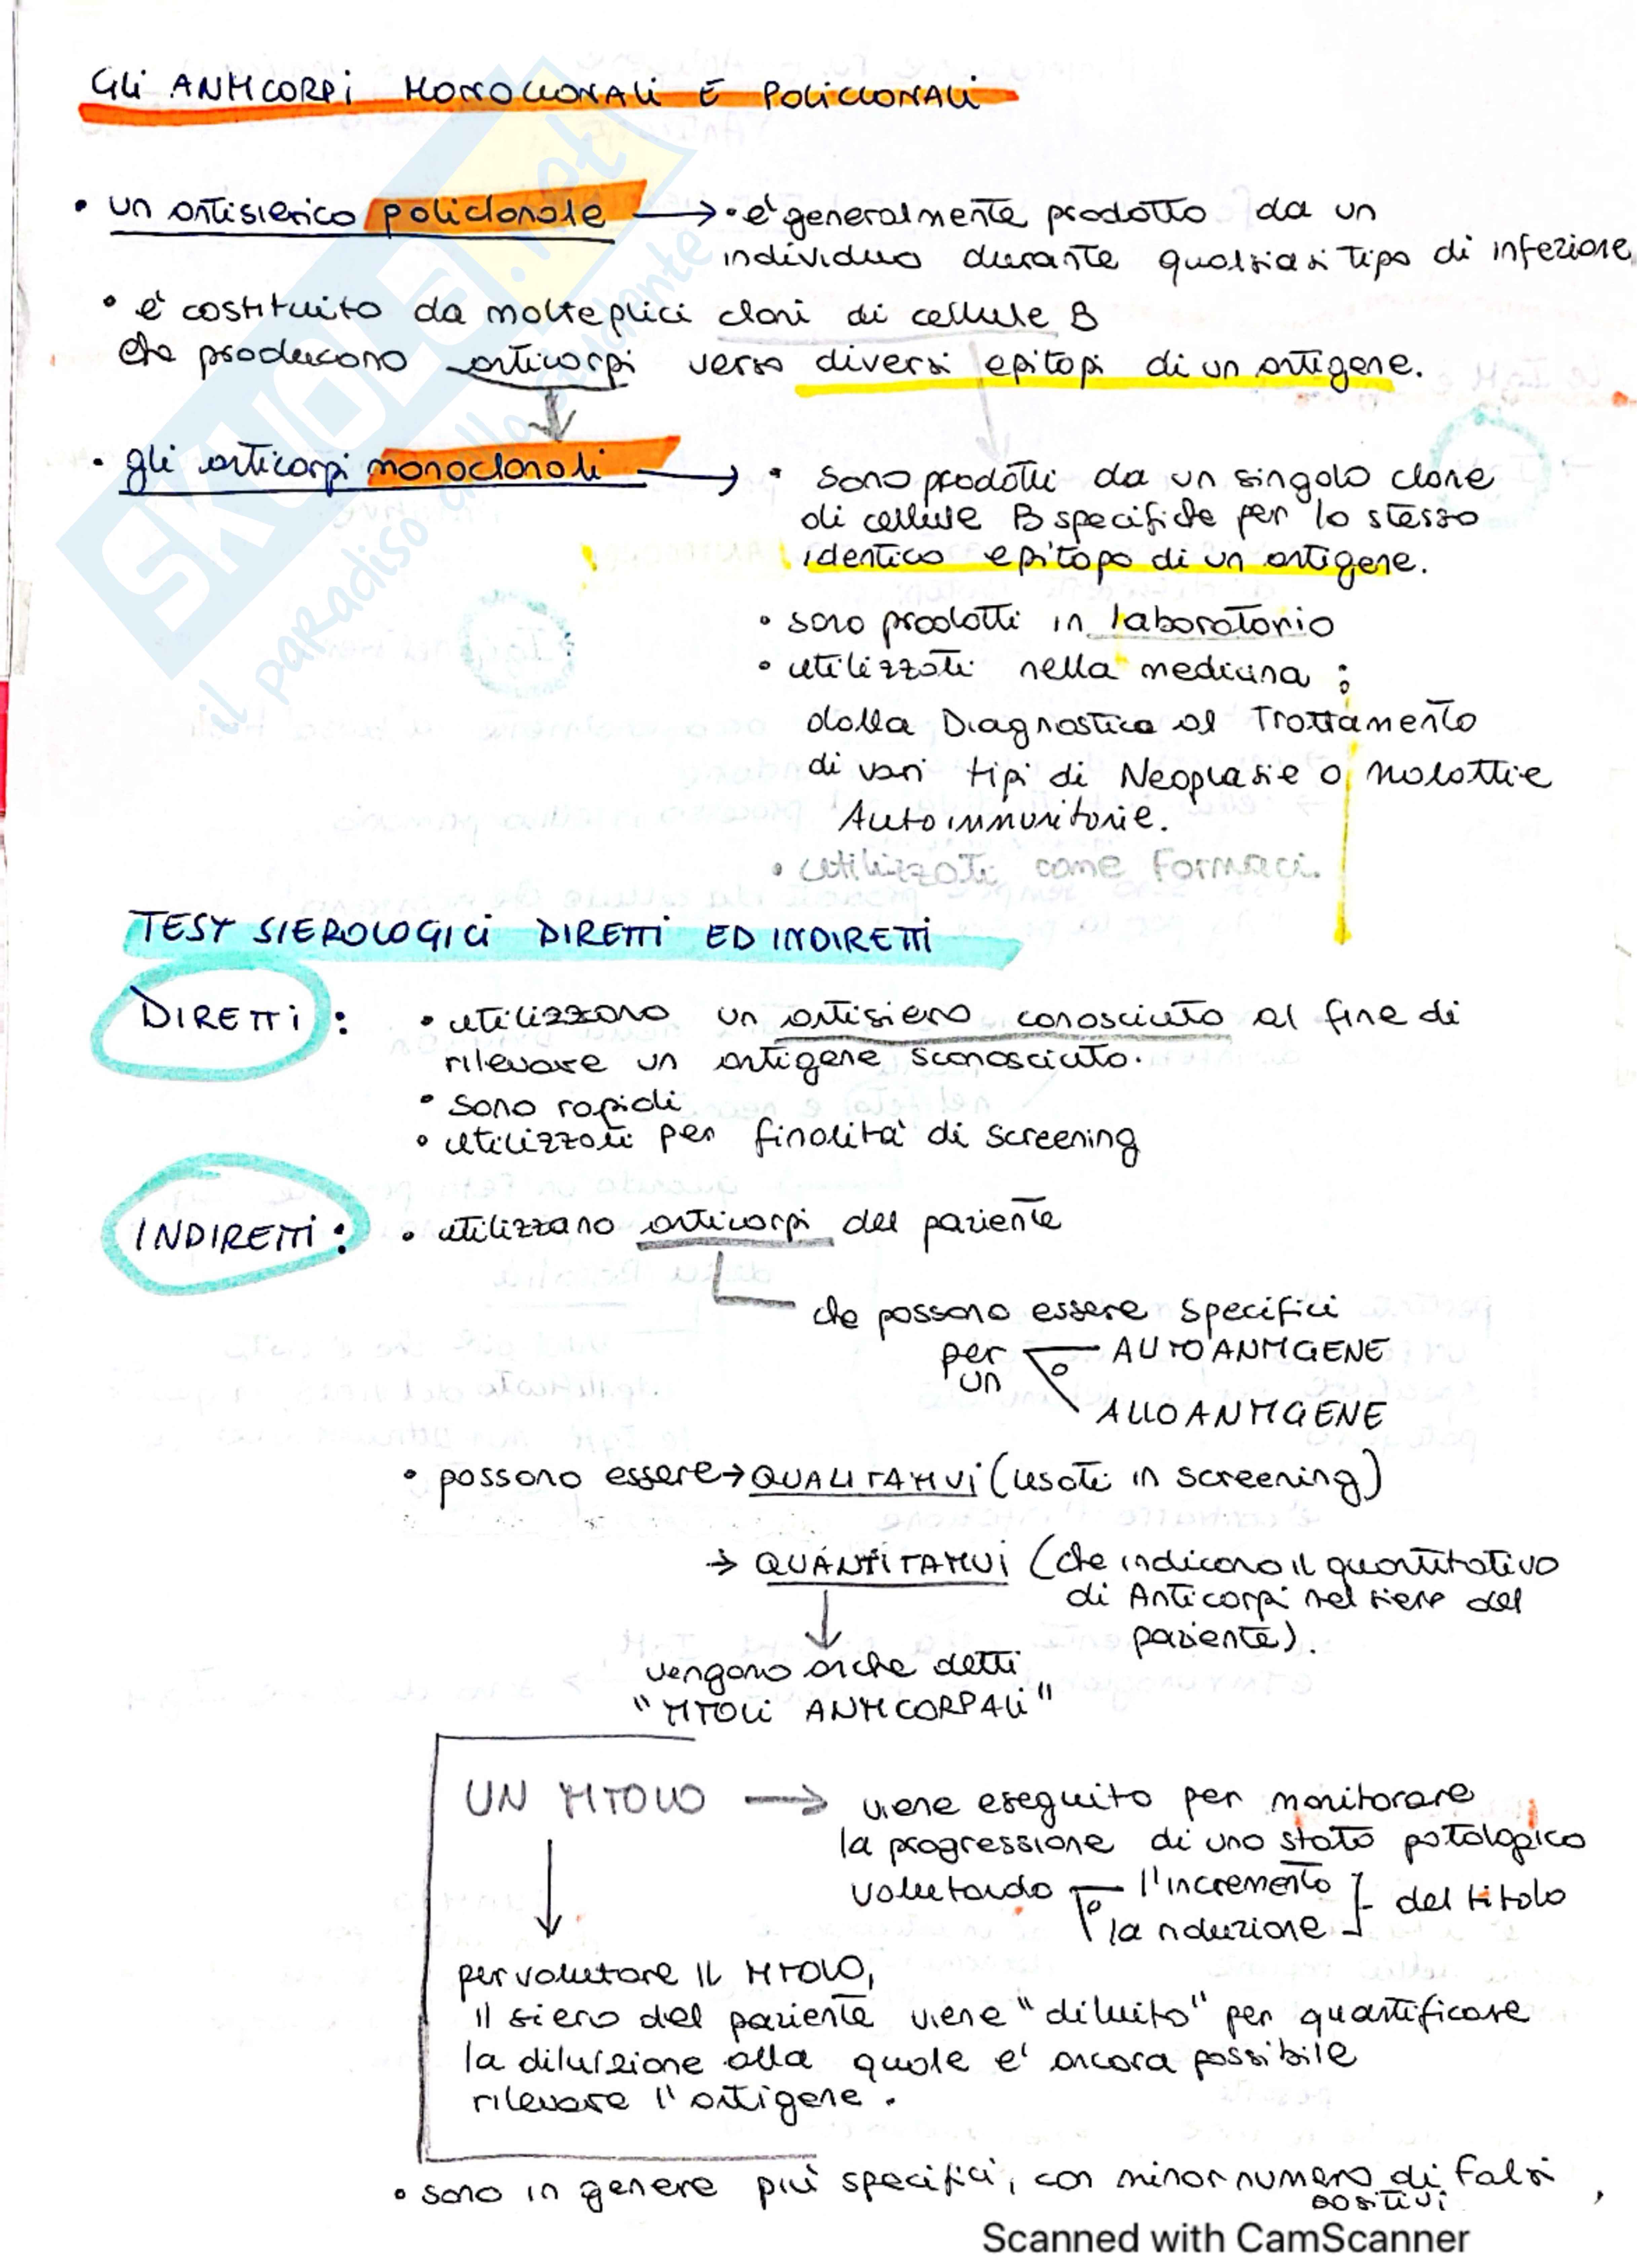 Gli ANTICORPi MONOCLONALi E POLiCLONALi
• un antisierico policlonale → • e' generalmente prodotto da un
individuo durante qualsiasi tipo di infezione
• e' costituito da molteplici cloni di cellule B
che producono anticorpi verso diversi epitopi di un antigene.
• gli anticorpi monoclonali → • sono prodotti da un singolo clone
di cellule B specifiche per lo stesso
identico epitopo di un antigene.
• sono prodotti in laboratorio
• utilizzati nella medicina :
dalla Diagnostica al Trattamento
di vari tipi di Neoplasie o Malattie
Autoimmunitarie.
• utilizzati come Farmaci.
TEST SIEROLOGICi DIRETTi ED INDIRETTi
DIRETTi : • utilizzano un antisiero conosciuto al fine di
rilevare un antigene sconosciuto.
• sono rapidi
• utilizzati per finalita' di screening
INDIRETTi : • utilizzano anticorpi del paziente
che possono essere specifici
per un AUTOANTIGENE
o
ALLOANTIGENE
• possono essere → QUALITATIVi (usati in screening)
→ QUANTITATIVi (che indicano il quantitativo
di Anticorpi nel siero del
paziente).
vengono anche detti
"TITOLi ANTICORPALi"
UN TITOLO → viene eseguito per monitorare
la progressione di uno stato patologico
valutando l'incremento
o
la riduzione
del titolo
per valutare IL TITOLO,
il siero del paziente viene "diluito" per quantificare
la diluizione alla quale e' ancora possibile
rilevare l'antigene.
• sono in genere piu' specifici, con minor numero di falsi
positivi
SKUOLA.net
il paradiso dello studente
Scanned with CamScanner